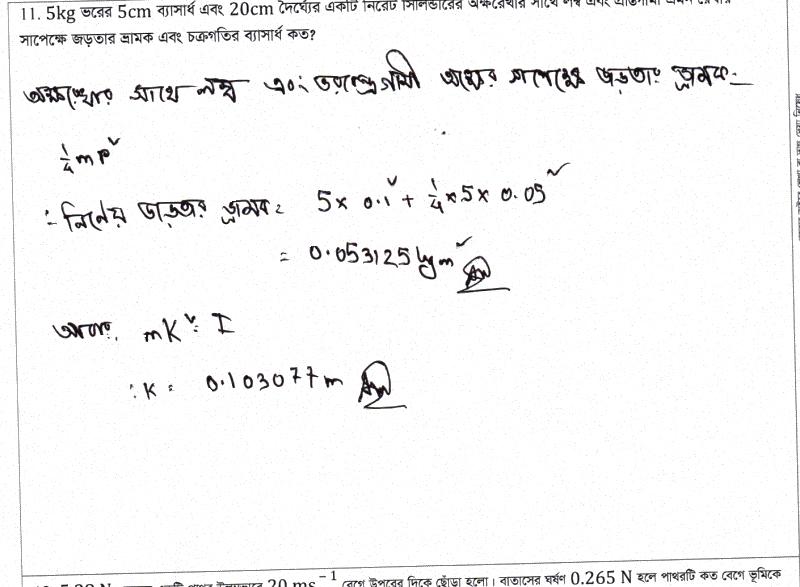 11. 5kg ভরের 5cm ব্যাসার্ধ এবং 20cm দৈর্ঘ্যের একটি নিরেট সিলিন্ডারের অক্ষরেখার সাথে লম্ব এবং
সাপেক্ষে জড়তার ভ্রামক এবং চক্রগতির ব্যাসার্ধ কত?
অক্ষরেখার সাথে লম্ব এবং ভরকেন্দ্রগামী অক্ষের সাপেক্ষে জড়তার ভ্রামক:-
¼ mr²
∴ নির্ণেয় জড়তার ভ্রামক = 5 × 0.1² + ¼ × 5 × 0.05²
= 0.053125 kgm² Ans
আবার, mK² = I
∴ K = 0.103077 m Ans
20 ms⁻¹ বেগে উপরের দিকে ছোঁড়া হলো। বাতাসের ঘর্ষণ 0.265 N হলে পাথরটি কত বেগে ভূমিকে